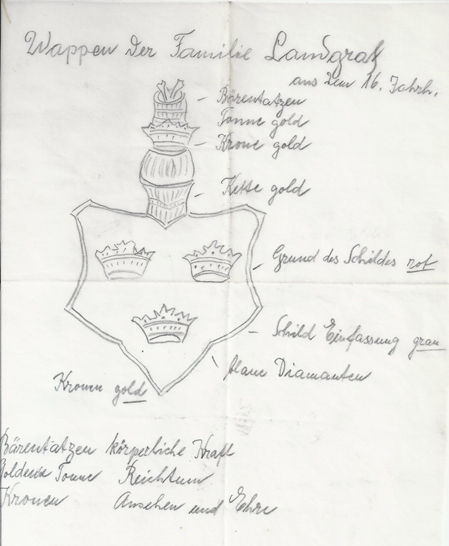 Wappen der Familie Landgraf
aus dem 16. Jahrh.
Bärentatzen
Tonne gold
Krone gold
Kette gold
Grund des Schildes rot
Schild Einfassung grau
blaue Diamanten
Kronen gold
Bärentatzen körperliche Kraft
Goldene Tonne Reichtum
Kronen Ansehen und Ehre